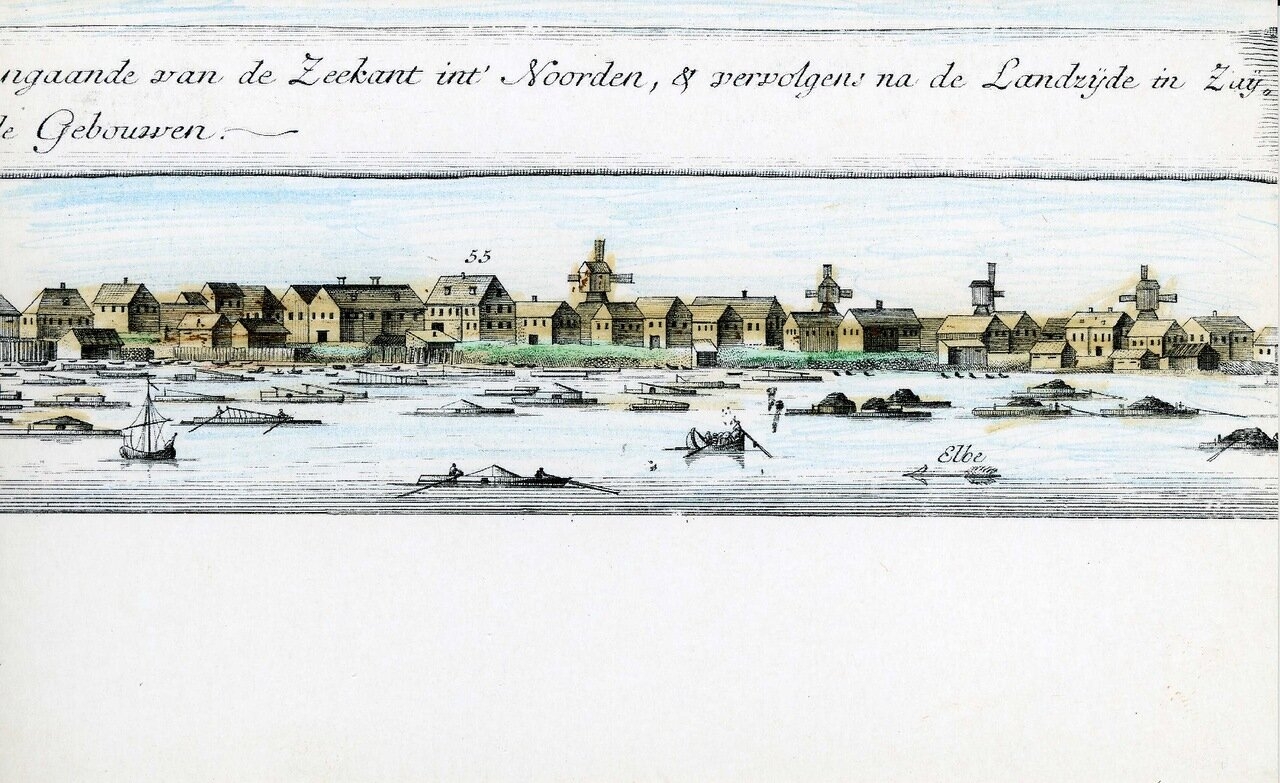 ngaande van de Zeekant int' Noorden, & vervolgens na de Landzÿde in Zuÿ,
de Gebouwen.
55
Elbe